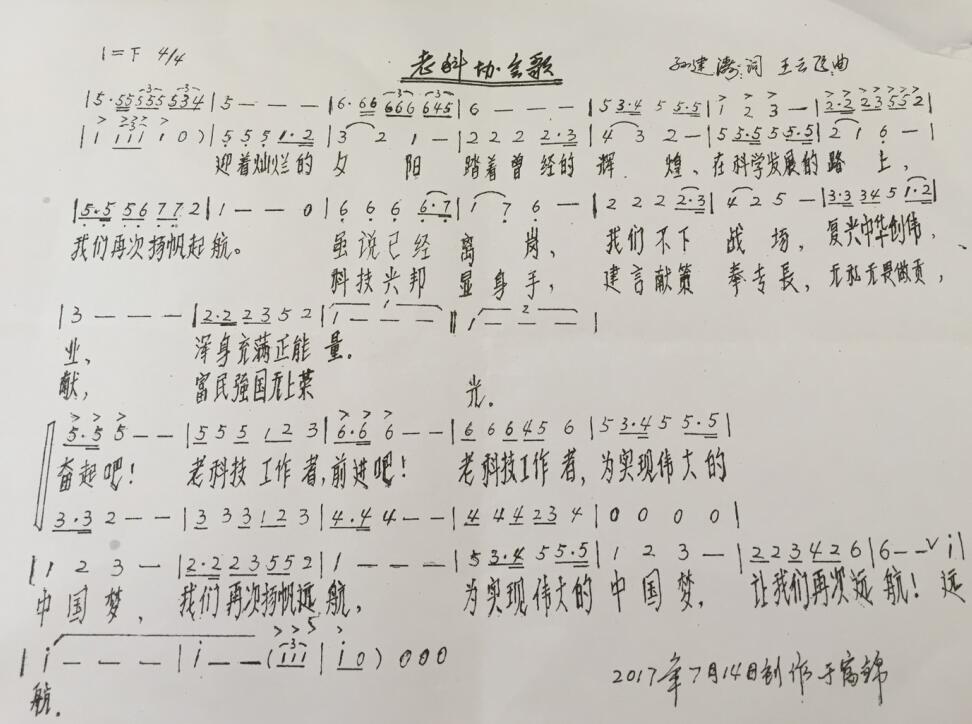 1=下 4/4 老科协会歌 孙建涛词 王云飞曲
|5·55 555 534|5 - - -|6·66 666 645|6 - - -|5 3·4 5 5·5|1 2 3 -|2·2 23 55 2|
|1 111 1 0)|5 5 5 1·2|3 2 1 -|2 2 2 2·3|4 3 2 -|5 5·5 5 5·5|2 1 6 -|
迎着灿烂的夕 阳 踏着曾经的辉 煌、在科学发展的路 上,
|5·5 56 77 2|1 - - 0|6 6 6 6·7|1 7 6 -|2 2 2 2·3|4 2 5 -|3·3 34 5 1·2|
我们再次扬帆起航。 虽说已经 离 岗、 我们不下 战 场, 复兴中华创伟,
科技兴邦 显身手, 建言献策 奉专長, 无私无畏做贡,
|3 - - -|2·2 23 5 2|1 - - -‖1 - - -|
业、 浑身充满正能 量.
献, 富民强国无上荣 光.
5·5 5 - -|5 5 5 12 3|6·6 6 - -|6 6 645 6|5 3·4 5 5·5|
奋起吧! 老科技工作者,前进吧! 老科技工作者,为实现伟大的
3·3 2 - -|3 3 312 3|4·4 4 - -|4 4 423 4|0 0 0 0|
|1 2 3 -|2·2 23 55 2|1 - - -|5 3·4 5 5·5|1 2 3 -|22 34 2 6|6 - -ˇi|
中国梦, 我们再次扬帆远航, 为实现伟大的中国梦, 让我们再次远航! 远
|i - - -|i - -(111|i0)000
航.
2017年7月14日创作于富锦